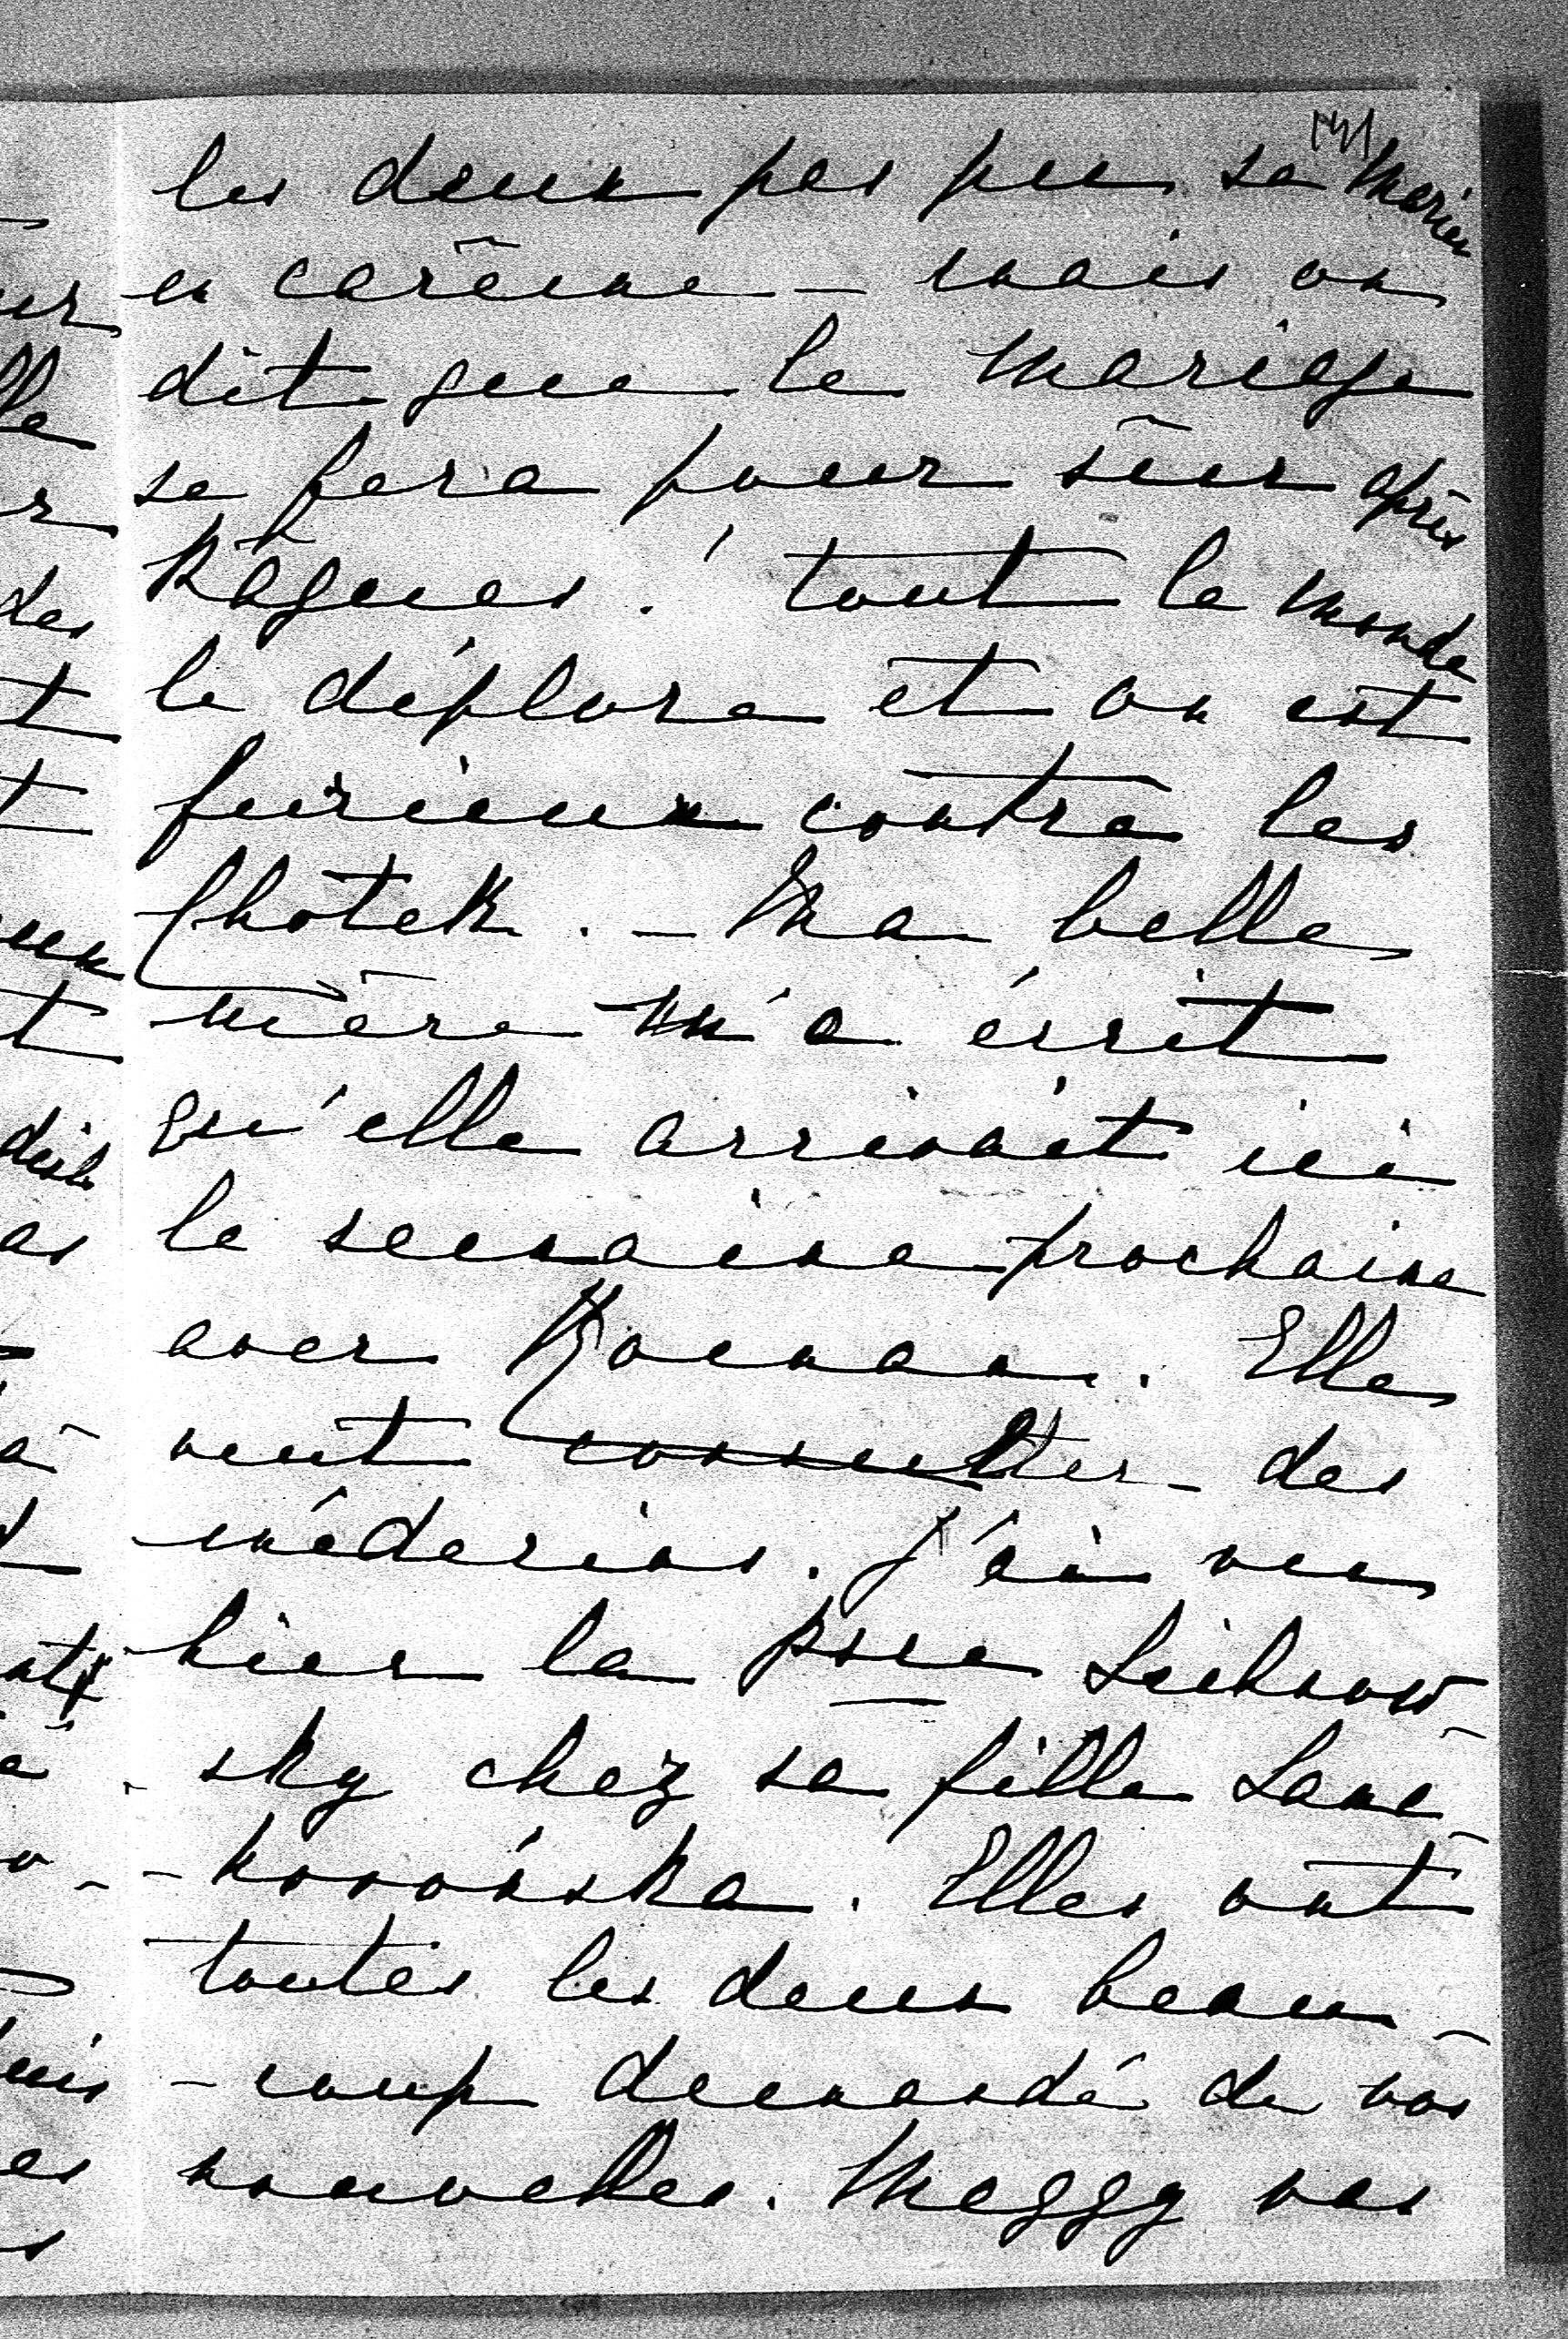 les deux pas pu se marier
en carême – mais on
dit que le mariage
se fera pour sûr après
Kâques. tout le monde
le déplore et on est
furieux contre les
Chotek. – Ma belle
mère m'a écrit
qu'elle arrivait ici
la semaine prochaine
avec Roman. Elle
veut consulter des
médecins. J'ai vu
hier la psse Lichnow-
-sky chez sa fille Lanc-
-korońska. Elles ont
toutes les deux beau-
-coup demandé de vos
nouvelles. Meggy vas